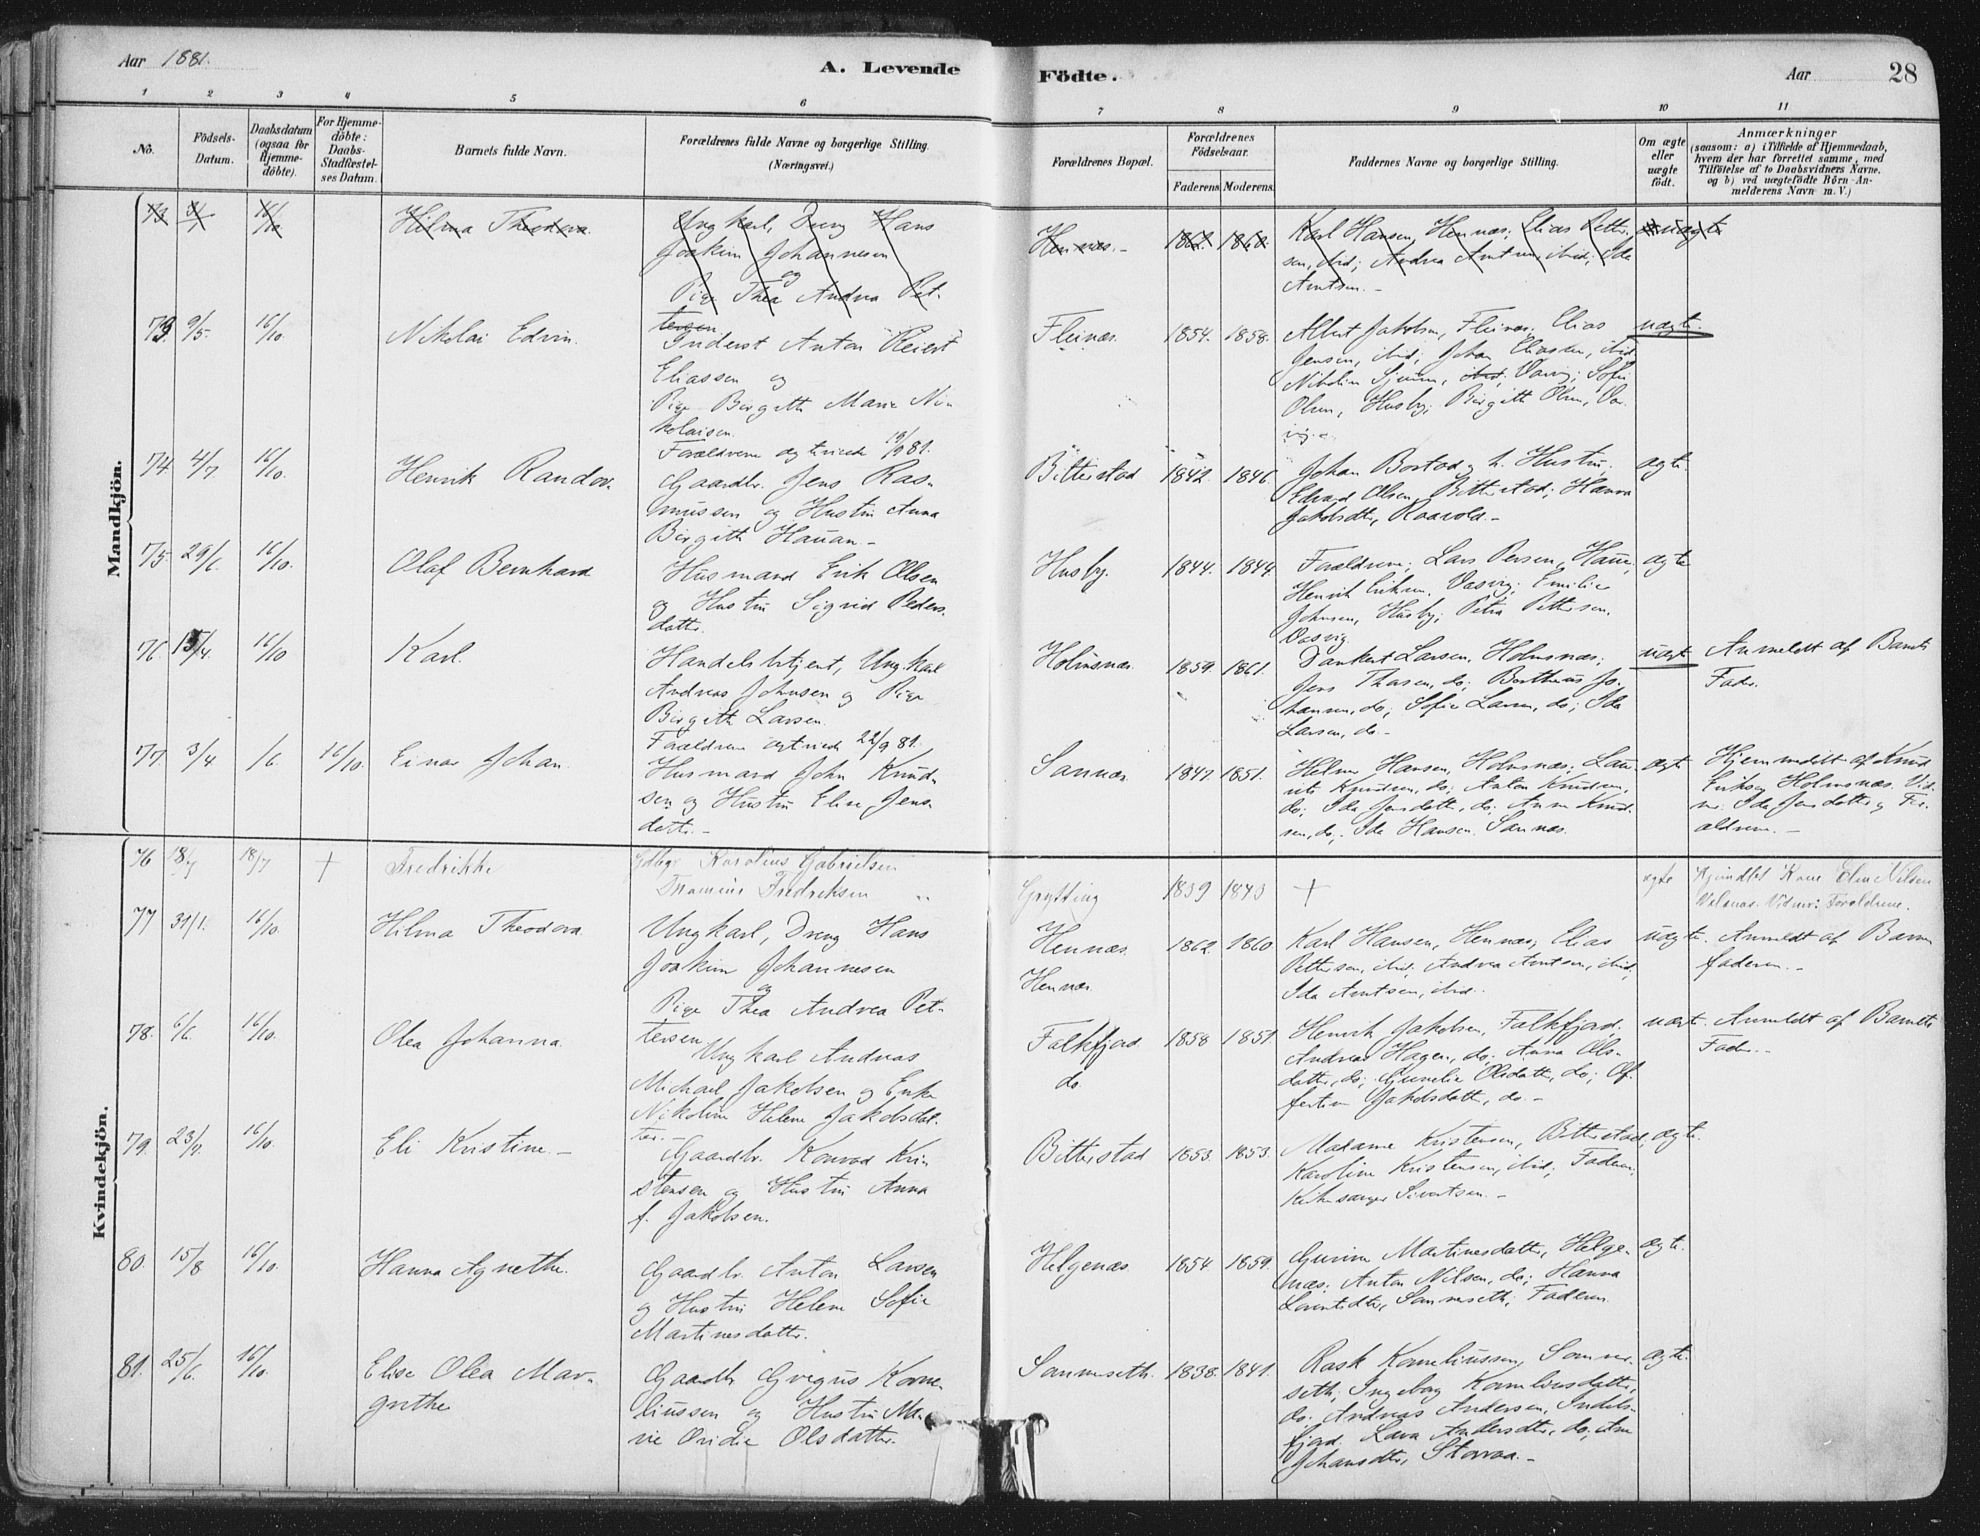 Aar 1881.
A. Levende Födte.
Aar
28
1 2 3 4 5 6 7 8 9 10 11
No.
Födsels-Datum.
Daabsdatum (ogsaa for Hjemme-döbte).
For Hjemme-döbte: Daabs-Stadfæstel-ses Datum.
Barnets fulde Navn.
Forældrenes fulde Navne og borgerlige Stilling.
(Næringsvei.)
Forældrenes Bopæl.
Forældrenes Födselsaar.
Faderens. Moderens.
Faddernes Navne og borgerlige Stilling.
Om ægte eller uægte födt.
Anmærkninger
(saasom: a) i Tilfælde af Hjemmedaab, hvem der har forrettet samme, med Tilföielse af to Daabsvidners Navne, og b) ved uægtefödte Börn An-melderens Navn m. V.)
Mandkjön.
73 16/10 Hilma Theodora.
Ungkarl, Dreng Hans
Joakim Johannesen
og
Pige Thea Andrea Pet-
tersen
Hennæs. - 1862. 1860.
Karl Hansen, Hennæs; Elias Petter-
sen, ibid; Andrea Arntsen, ibid; Ida
Arntsen. -
uægte
73 9/5. 16/10. Nikolai Edvin.
Inderst Anton Reiert
Eliassen og
Pige Birgith Marie Ni-
kolaisen.
Forældrene ægteviede 19/9 81.
Fleinæs. 1854. 1858.
Albert Jakobsen, Fleinæs; Elias
Jensen, ibid; Johan Eliassen, ibid
Olsen, Husby; Birgith Olsen, Vas-
vig. -
uægte.
74 4/7. 16/10. Henrik Randor.
Gaardbr. Jens Ras-
mussen og Hustru Anna
Birgith Hauan -
Bitterstad 1842. 1846.
Johan Bostad og h. Hustru.
Edvard Olsen, Bitterstad; Hanna
Jakobsdtr, -
ægte.
75. 29/6. 16/10. Olaf Bernhard
Husmand Erik Olsen
og Hustru Sigrid Peders-
datter.
Husby. 1844. 1844.
Forældrene; Lars Persen, Haue,
Henrik Eriksen. Vasvig; Emilie
Johnsen, Husby; Petra Pettersen.
Vasvig.
ægte
76. 15/4. 16/10 Karl.
Handelsbetjent, Ungkarl
Andreas Johnsen og Pige
Birgith Larsen.
Forældrene ægteviede 22/9 81.
Holmsnæs. 1859. 1861.
Dankert Larsen, Holmsnæs;
Jens Thasen, do; Bertheus Jo-
hansen, do; Sofie Larsen, do; Ida
Larsen, do -
uægte
Anmeldt af Barnets
Fader.
77. 3/4 /6. 16/10. Einar Johan.
Husmand John Knud-
sen og Hustru Elise Jens-
datter. -
Sannæs. 1847. 1851.
Helmer Hansen, Holmsnæs; Lau-
rits Knudsen, do; Anton Knudsen,
do; Ida Jensdatter, do; Anne Knud-
sen, do; Ida Hansen. Sannæs.
ægte
Hjemmedöbt af Knud
Eriksen Holmsnæs. Vid-
ner: Ida Jensdatter og For-
ældrene. -
Kvindekjön.
76 18/7 18/7 + Fredrikke
Gdbgr Karolius Gabrielsen
Fredriksen
Grytting 1839 1843 +
ægte
Hjemdöbt Kone Elen Nilsen
Vidner: Forældrene.
77 31/1. 16/10. Hilma Theodora.
Ungkarl, Dreng Hans
Joakim Johannesen
og
Pige Thea Andrea Pet-
tersen
Hennæs. 1862. 1860.
Hennæs.
Karl Hansen, Hennæs; Elias
Pettersen, ibid; Andrea Arntsen, ibid;
Ida Arntsen, ibid.
uægte.
Anmeldt af Barne
faderen. -
78. 6/6. 16/10. Olea Johanna.
Ungkarl Andreas
Michael Jakobsen og Enke
Nikoline Helene Jakobsdat-
ter. -
Falkfjord 1858 1851.
do.
Henrik Jakobsen, Falkfjord.
Andreas Hagen, do; Anna Ols-
datter, do; Gunelie Olsdatter, do; Of-
fertine Jakobsdatter, do. -
uægte.
Anmeldt af Barnets
Fader. -
79. 23/7. 16/10. Eli Kristine. -
Gaardbr. Konrad Kri-
stensen og Hustru Anna
f. Jakobsen.
Bitterstad 1853. 1853.
Madame Kristensen, Bitterstad;
Karoline Kristensen, ibid; Faderen;
Kirkesanger Sivertsen. -
ægte.
80. 15/8 16/10. Hanna Agnethe.
Gaardbr. Anton Larsen
og Hustru Helene Sofie
Martinusdatter.
Helgenæs. 1854 1859.
Gurine Martinesdatter, Helge-
næs; Anton Nilsen, do; Hanna
Sommeseth; Faderen
ægte.
81. 25/6. 16/10. Elise Olea Mar-
grethe
Gaardbr Gregus Korne-
liussen og Hustru Ma-
rie Oridie Olsdatter.
Sommeseth. 1838. 1841.
Rask Korneliussen, Somme-
seth; Ingeborg Korneliusdatter,
do; Andreas Andersen, Indels-
fjord. Lava Andersdtr, do; Ane
Johansdtr, Storvaa. -
ægte.